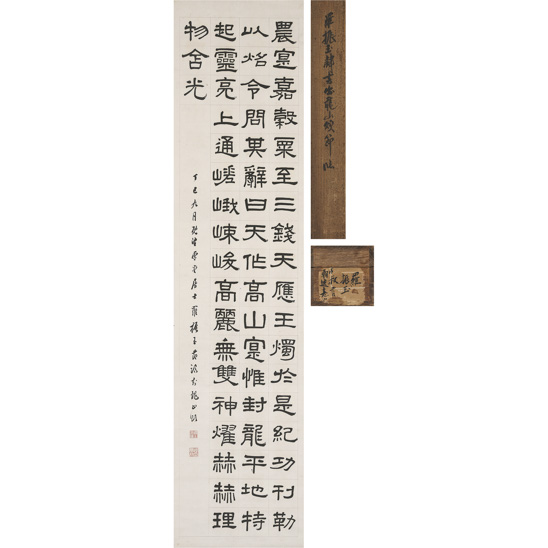 農寔嘉穀粟至三錢天應玉燭於是紀功刊勒
以炤令問其辭曰天作高山寔惟封龍平地特
起靈亮上通嵯峨竦峻高麗無雙神燿赫赫理
物含光
丁巳九月 居士羅振玉
羅振玉
羅振玉